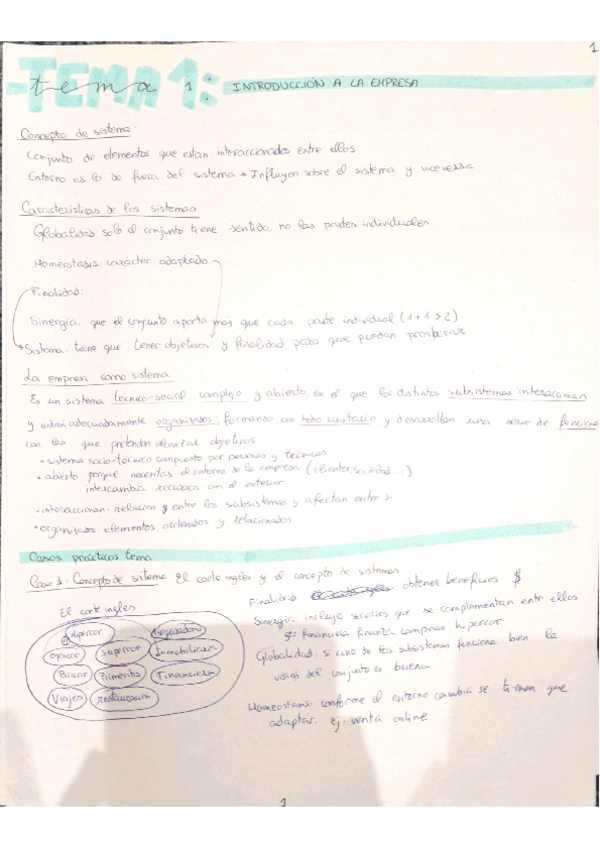 1
TEMA 1:
tema 1
INTRODUCCIÓN A LA EMPRESA
Concepto de sistema:
Conjunto de elementos que estan interaccionados entre ellos
Entorno es lo de fuera del sistema → Influyen sobre el sistema y viceversa
Características de los sistemas
Globalidad solo el conjunto tiene sentido, no las partes individuales
Homeostasis: carácter adaptado
Finalidad:
Sinergia: que el conjunto aporta más que cada parte individual (1+1>2)
Sistema: tiene que tener objetivos y finalidad para que puedan
La empresa como sistema
Es un sistema técnico-social complejo y abierto, en el que los distintos subsistemas interaccionan
y están adecuadamente organizados, formando un todo unitario, y desarrollan una serie de funciones
con las que pretenden alcanzar objetivos
• sistema socio-técnico compuesto por personas y técnicas
• abierto porque necesitas el entorno de la empresa (clientes, sociedad...)
intercambia recursos con el exterior
• interaccionan: relacion y entre los subsistemas y afectan entre si
• organizados: elementos ordenados y relacionados
Casos prácticos tema
Caso 1: Concepto de sistema. El corte ingles y el concepto de sistemas
El corte ingles
Hipercor
Opencor
Supercor
Inmobiliaria
Bricor
Primeriti
Financiera
Viajes
restauración
Finalidad obtener beneficios $
Sinergia: incluye servicios que se complementan entr ellos
Financiera financia compras hipercor
Globalidad: si uno de los subsistemas funciona bien la
del conjunto es buena
Homeostasis: conforme el entorno cambia se tienen que
adaptar. ej. venta online
1